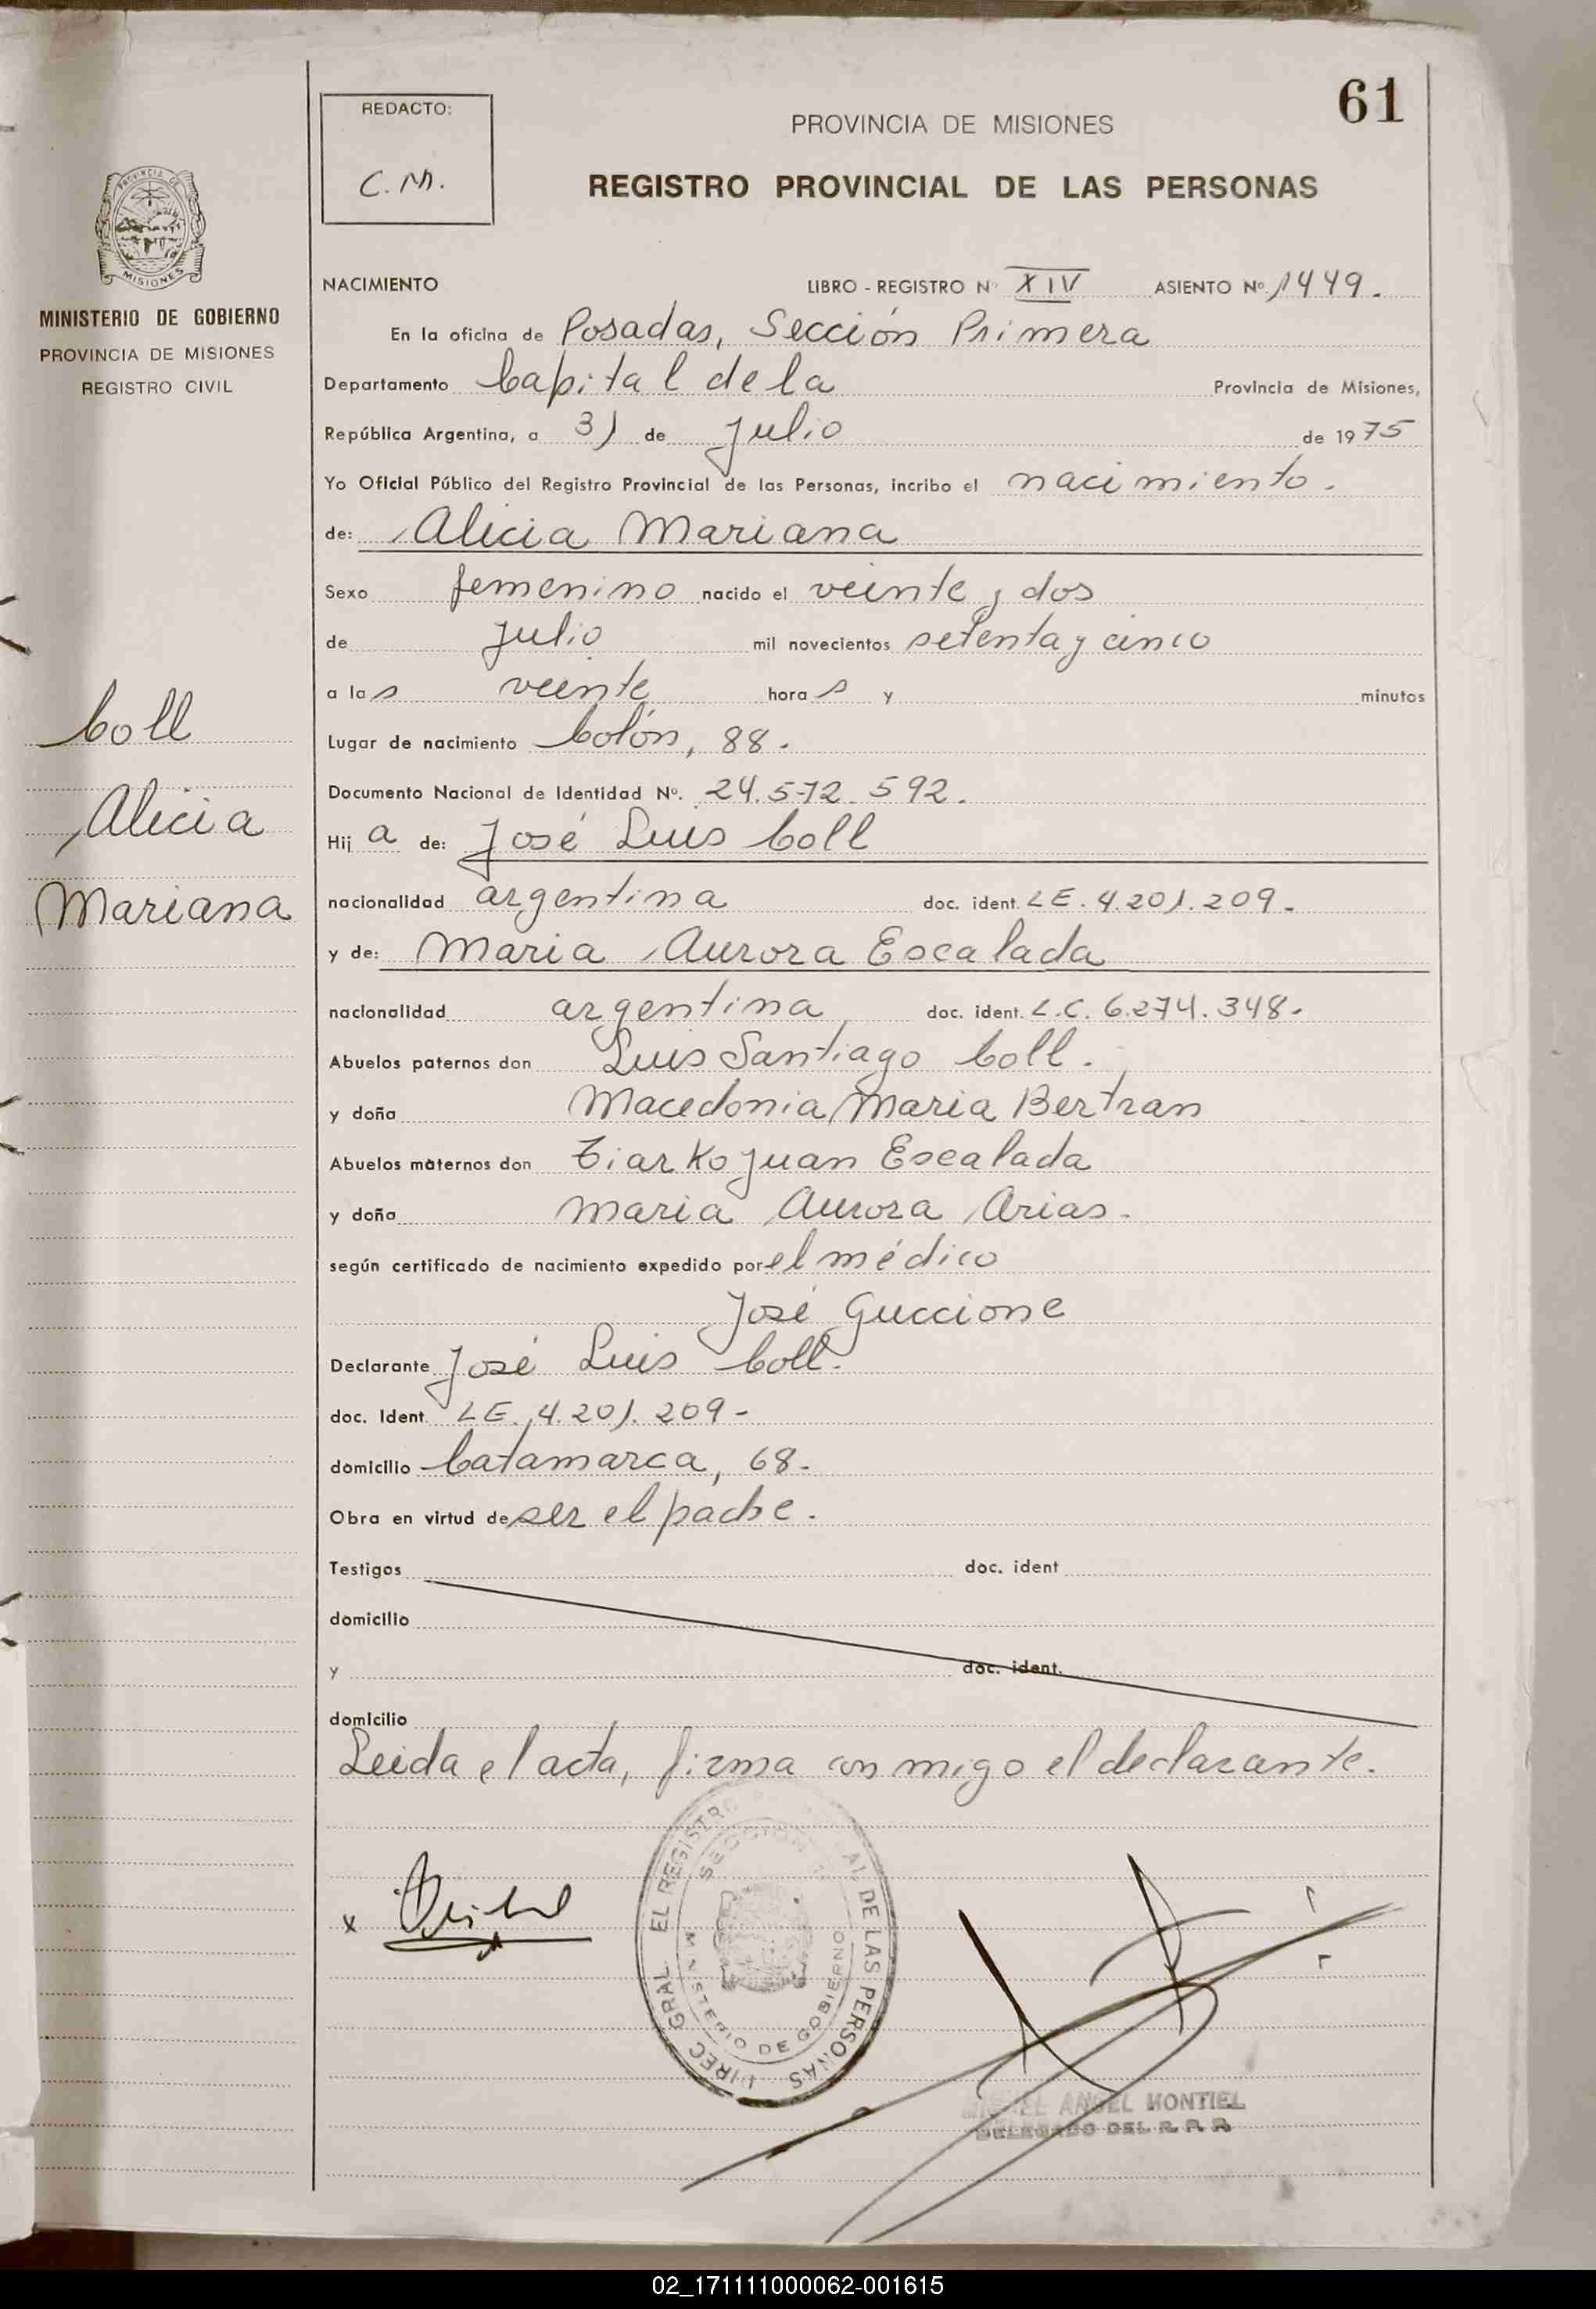 61
REDACTO:
C.M.
PROVINCIA DE MISIONES
REGISTRO PROVINCIAL DE LAS PERSONAS
PROVINCIA DE
MISIONES
MINISTERIO DE GOBIERNO
PROVINCIA DE MISIONES
REGISTRO CIVIL
Coll
Alicia
Mariana
NACIMIENTO LIBRO - REGISTRO Nº XIV ASIENTO Nº 1449.
En la oficina de Posadas, Sección Primera
Departamento Capital de la Provincia de Misiones,
República Argentina, a 31 de Julio de 1975
Yo Oficial Público del Registro Provincial de las Personas, incribo el nacimiento.
de: Alicia Mariana
Sexo femenino nacido el veinte y dos
de Julio mil novecientos setenta y cinco
a las veinte horas y minutos
Lugar de nacimiento Colón, 88.
Documento Nacional de Identidad Nº. 24.572.592.
Hija de: José Luis Coll
nacionalidad argentina doc. ident. LE. 4.201.209.-
y de: Maria Aurora Escalada
nacionalidad argentina doc. ident. L.C. 6.274.348.-
Abuelos paternos don Luis Santiago Coll.
y doña Macedonia Maria Bertran
Abuelos maternos don Ciarko Juan Escalada
y doña Maria Aurora Arias.
según certificado de nacimiento expedido por el médico
José Guccione
Declarante José Luis Coll.
doc. Ident. LE. 4.201.209-
domicilio Catamarca, 68.
Obra en virtud de ser el padre.
Testigos doc. ident
domicilio
y doc. ident.
domicilio
Leida el acta, firma conmigo el declarante.
x
DIREC GRAL EL REGISTRO AL DE LAS PERSONAS
SECCION
MINISTERIO DE GOBIERNO
MIGUEL ANGEL MONTIEL
DELEGADO DEL R. P. P.
02_171111000062-001615